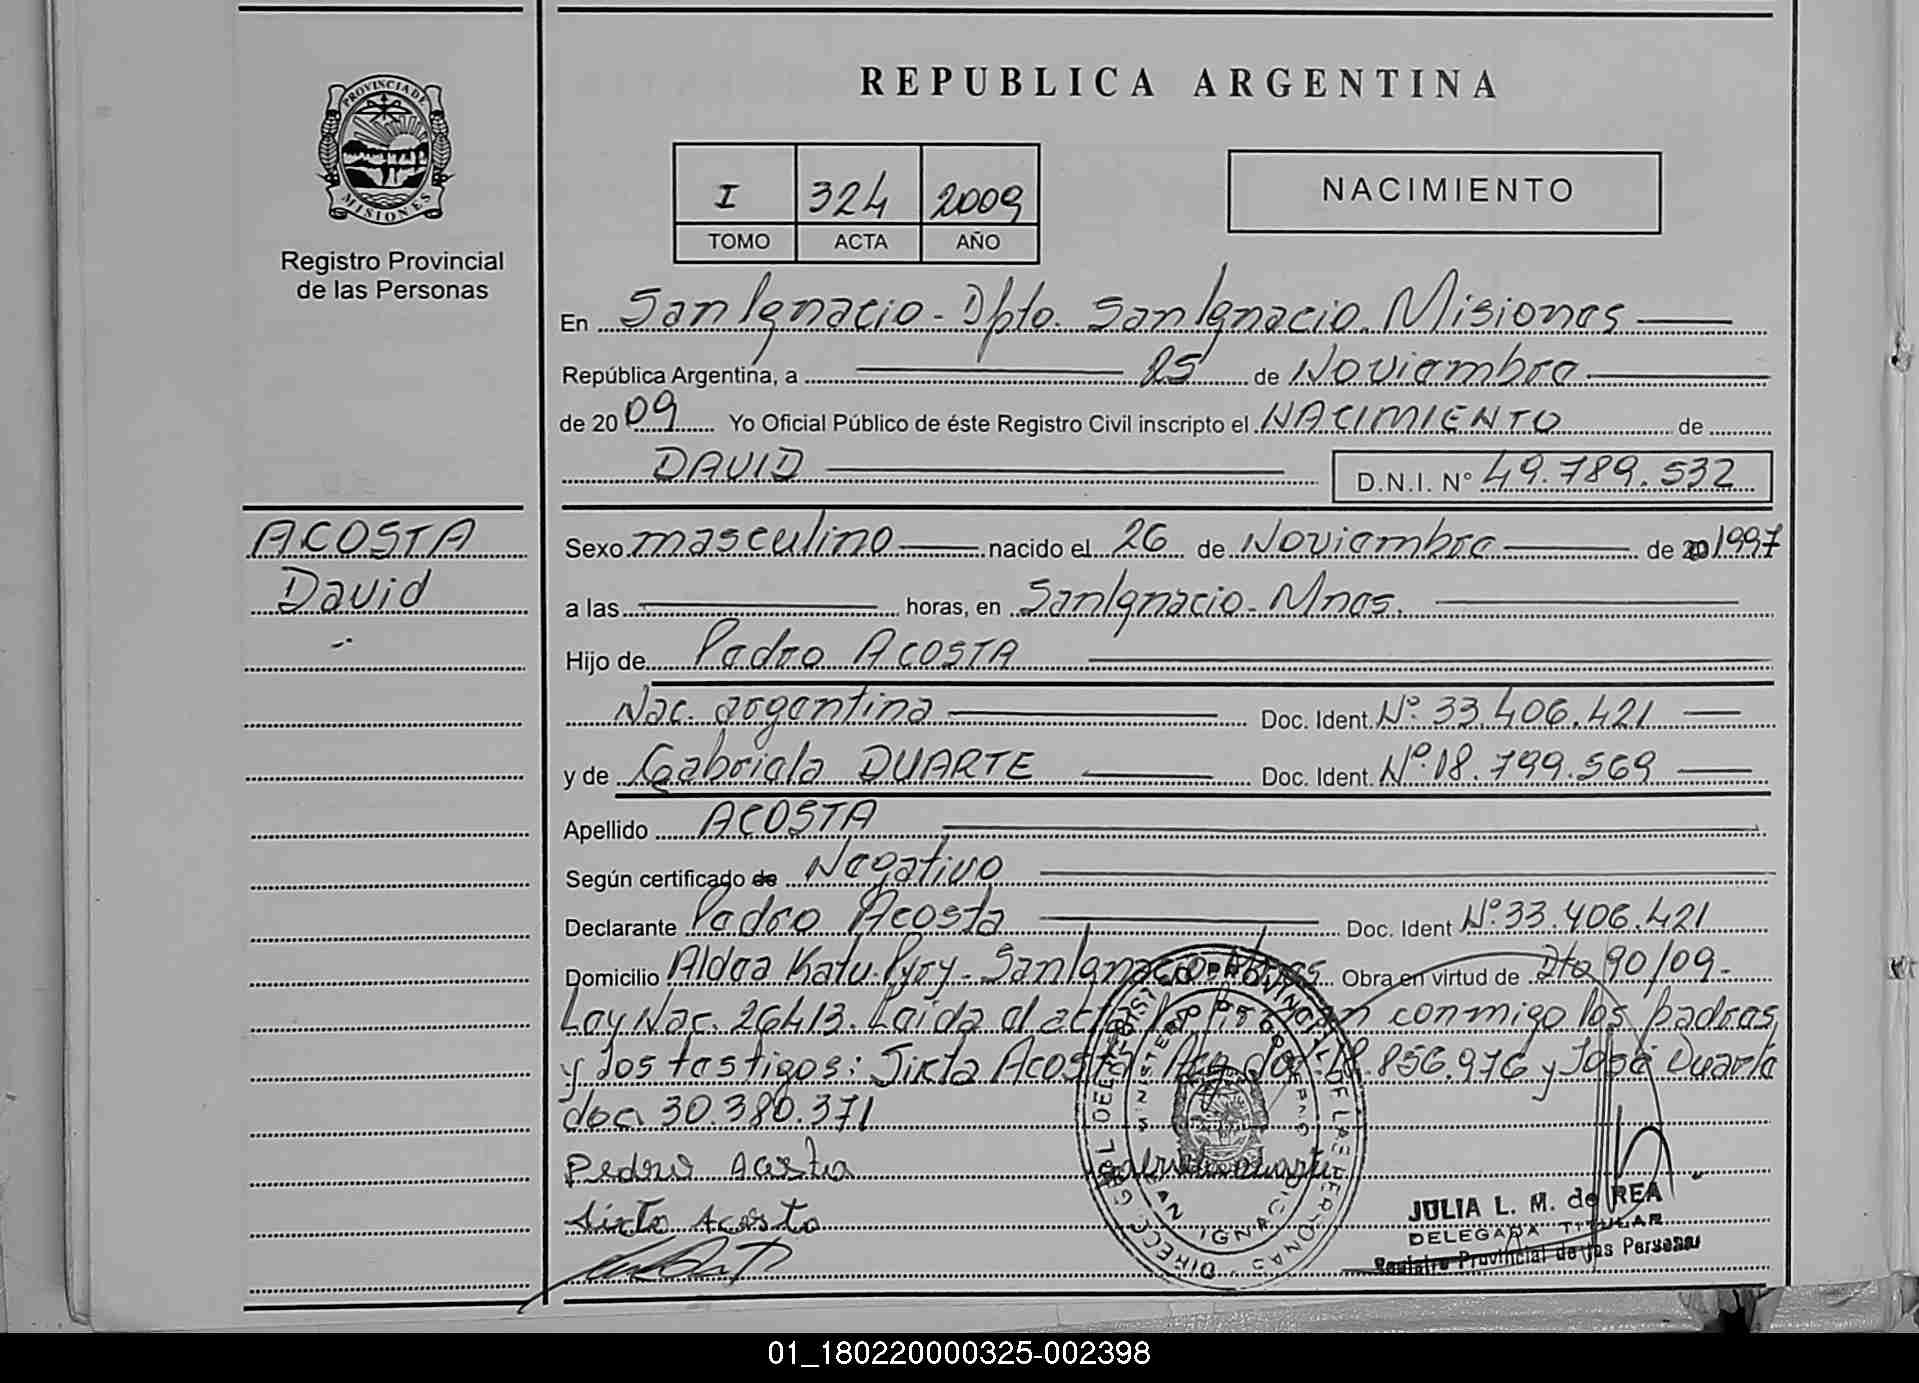 PROVINCIA DE
MISIONES
Registro Provincial
de las Personas
ACOSTA
David
REPUBLICA ARGENTINA
I 324 2009
TOMO ACTA AÑO
NACIMIENTO
En San Ignacio - Dpto. San Ignacio. Misiones
República Argentina, a 25 de Noviembre
de 2009 Yo Oficial Público de éste Registro Civil inscripto el NACIMIENTO de
DAVID D.N.I. Nº 49.789.532
Sexo masculino nacido el 26 de Noviembre de 20 1997
a las horas, en San Ignacio - Mnes.
Hijo de Pedro ACOSTA
Nac. argentina Doc. Ident. Nº 33.406.421
y de Gabriela DUARTE Doc. Ident. Nº 18.799.569
Apellido ACOSTA
Según certificado de Negativo
Declarante Pedro Acosta Doc. Ident Nº 33.406.421
Domicilio Aldea Katu Pyry - San Ignacio - Mnes Obra en virtud de Dto 90/09 -
Ley Nac. 26413. Leida el acta conmigo los padres
y dos testigos: Sixto Acosta 856.976 y José Duarte
doc. 30.380.371
Pedro Acosta
Sixto Acosta
DIRECC. GRAL DE REGISTRO PROVINCIAL DE LAS PERSONAS
MINISTERIO DE GOBIERNO
SAN IGNACIO
JULIA L. M. de REA
DELEGADA TITULAR
Registro Provincial de las Personas
01_180220000325-002398